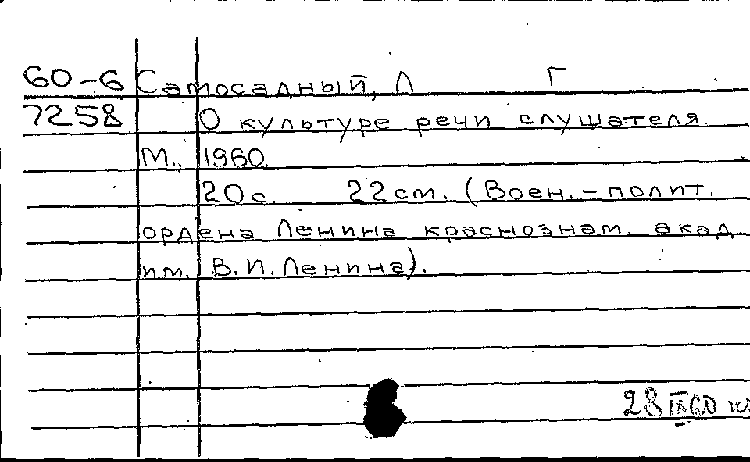 60-6 Самосадный, Л Г
7258 О культуре речи слушателя.
М., 1960.
20с. 22см. (Воен.-полит.
ордена Ленина краснознам. акад
им. В.И.Ленина).
28 IX 60